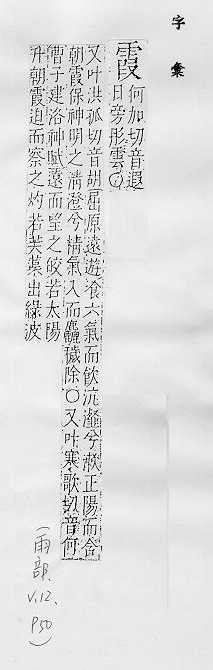 字彙
霞
何加切音遐
日旁彤雲〇
又叶洪孤切音胡屈原遠遊飡六氣而飲沆瀣兮漱正陽而含
朝霞保神明之清澄兮精氣入而麤穢除〇又叶寒歌切音何
曹子建洛神賦遠而望之皎若太陽
升朝霞迫而察之灼若芙蕖出綠波
(雨部.
V.12.
P50)